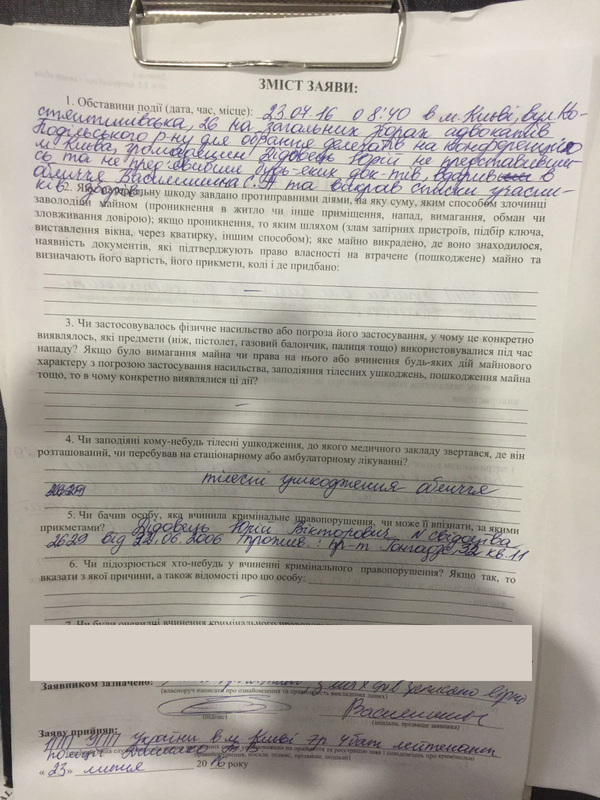 ЗМІСТ ЗАЯВИ:
1. Обставини події (дата, час, місце): 23.07.16 о 8:40 в м. Києві, вул. Ко-
стянтинівська, 26 на загальних зборах адвокатів
Подільського р-ну для обрання делегатів на конференцію
м. Києва, громадянин Дідовець Юрій не представивши-
сь та не пред'явивши будь-яких док-тів, вдарив в
обличчя Василишина С.Я та вкрав списки учасни-
ків зборів.
2. Яку матеріальну шкоду завдано протиправними діями, на яку суму, яким способом злочинці
заволоділи майном (проникнення в житло чи інше приміщення, напад, вимагання, обман чи
зловживання довірою); якщо проникненням, то яким шляхом (злам запірних пристроїв, підбір ключа,
виставлення вікна, через кватирку, іншим способом); яке майно викрадено, де воно знаходилося,
наявність документів, які підтверджують право власності на втрачене (пошкоджене) майно та
визначають його вартість, його прикмети, колі і де придбано:
—
3. Чи застосовувалось фізичне насильство або погроза його застосування, у чому це конкретно
виявлялось, які предмети (ніж, пістолет, газовий балончик, палиця тощо) використовувалися під час
нападу? Якщо було вимагання майна чи права на нього або вчинення будь-яких дій майнового
характеру з погрозою застосування насильства, заподіяння тілесних ушкоджень, пошкодження майна
тощо, то в чому конкретно виявлялися ці дії?
—
4. Чи заподіяні кому-небудь тілесні ушкодження, до якого медичного закладу звертався, де він
розташований, чи перебував на стаціонарному або амбулаторному лікуванні?
тілесні ушкодження обличчя
5. Чи бачив особу, яка вчинила кримінальне правопорушення, чи може її впізнати, за якими
прикметами? Дідовець Юрій Вікторович N свідоцтва
2629 від 22.06.2006 прожив.: пр-т Гонгадзе 32 кв. 11
6. Чи підозрюється хто-небудь у вчиненні кримінального правопорушення? Якщо так, то
вказати з якої причини, а також відомості про цю особу:
—
Заявником зазначено: з моїх слів записано вірно
(підпис)
Заяву прийняв:
УПП України в м. Києві лейтенант
поліції
« 23 » липня 20 16 року